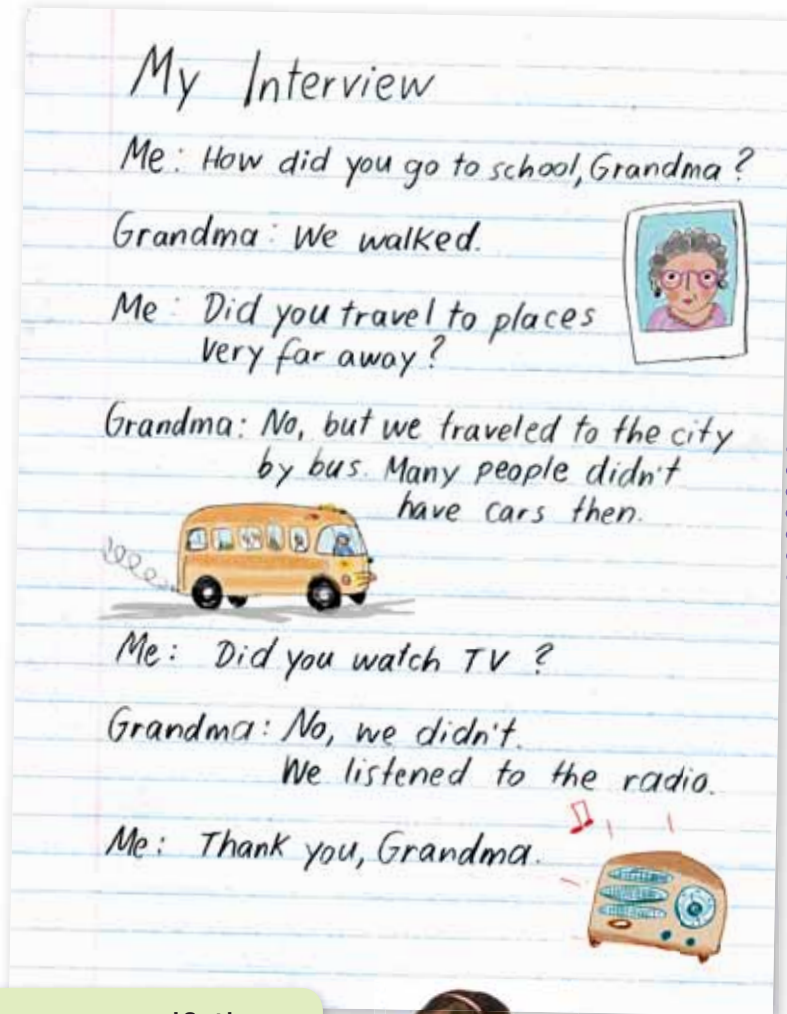 My Interview
Me: How did you go to school, Grandma?
Grandma: We walked.
Me: Did you travel to places
very far away?
Grandma: No, but we traveled to the city
by bus. Many people didn't
have cars then.
Me: Did you watch TV?
Grandma: No, we didn't.
We listened to the radio.
Me: Thank you, Grandma.